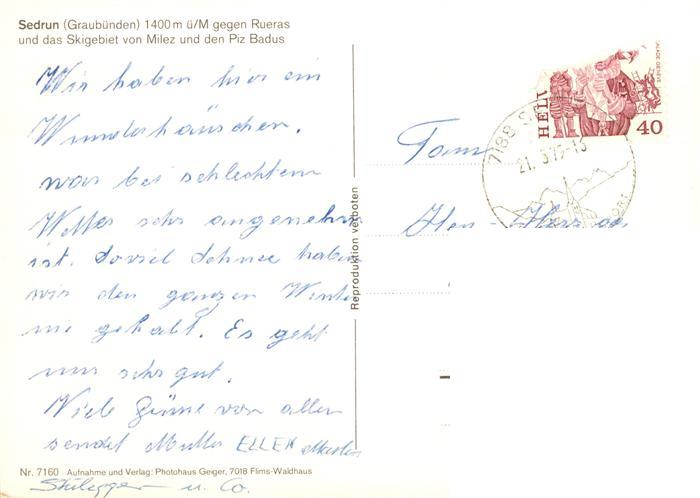 Sedrun (Graubünden) 1400 m ü/M gegen Rueras
und das Skigebiet von Milez und den Piz Badus
Wir haben hier ein
Wunderhäuschen,
was bei schlechtem
Wetter sehr angenehm
ist. Soviel Schnee haben
wir den ganzen Winter
nie gehabt. Es geht
uns sehr gut.
Viele Grüsse von allen
sendet Mutter ELLEN
u. Co.
Nr. 7160 Aufnahme und Verlag: Photohaus Geiger, 7018 Flims-Waldhaus
Reproduktion verboten
Fam
HELV
40
7188 S
21. 3.79-13